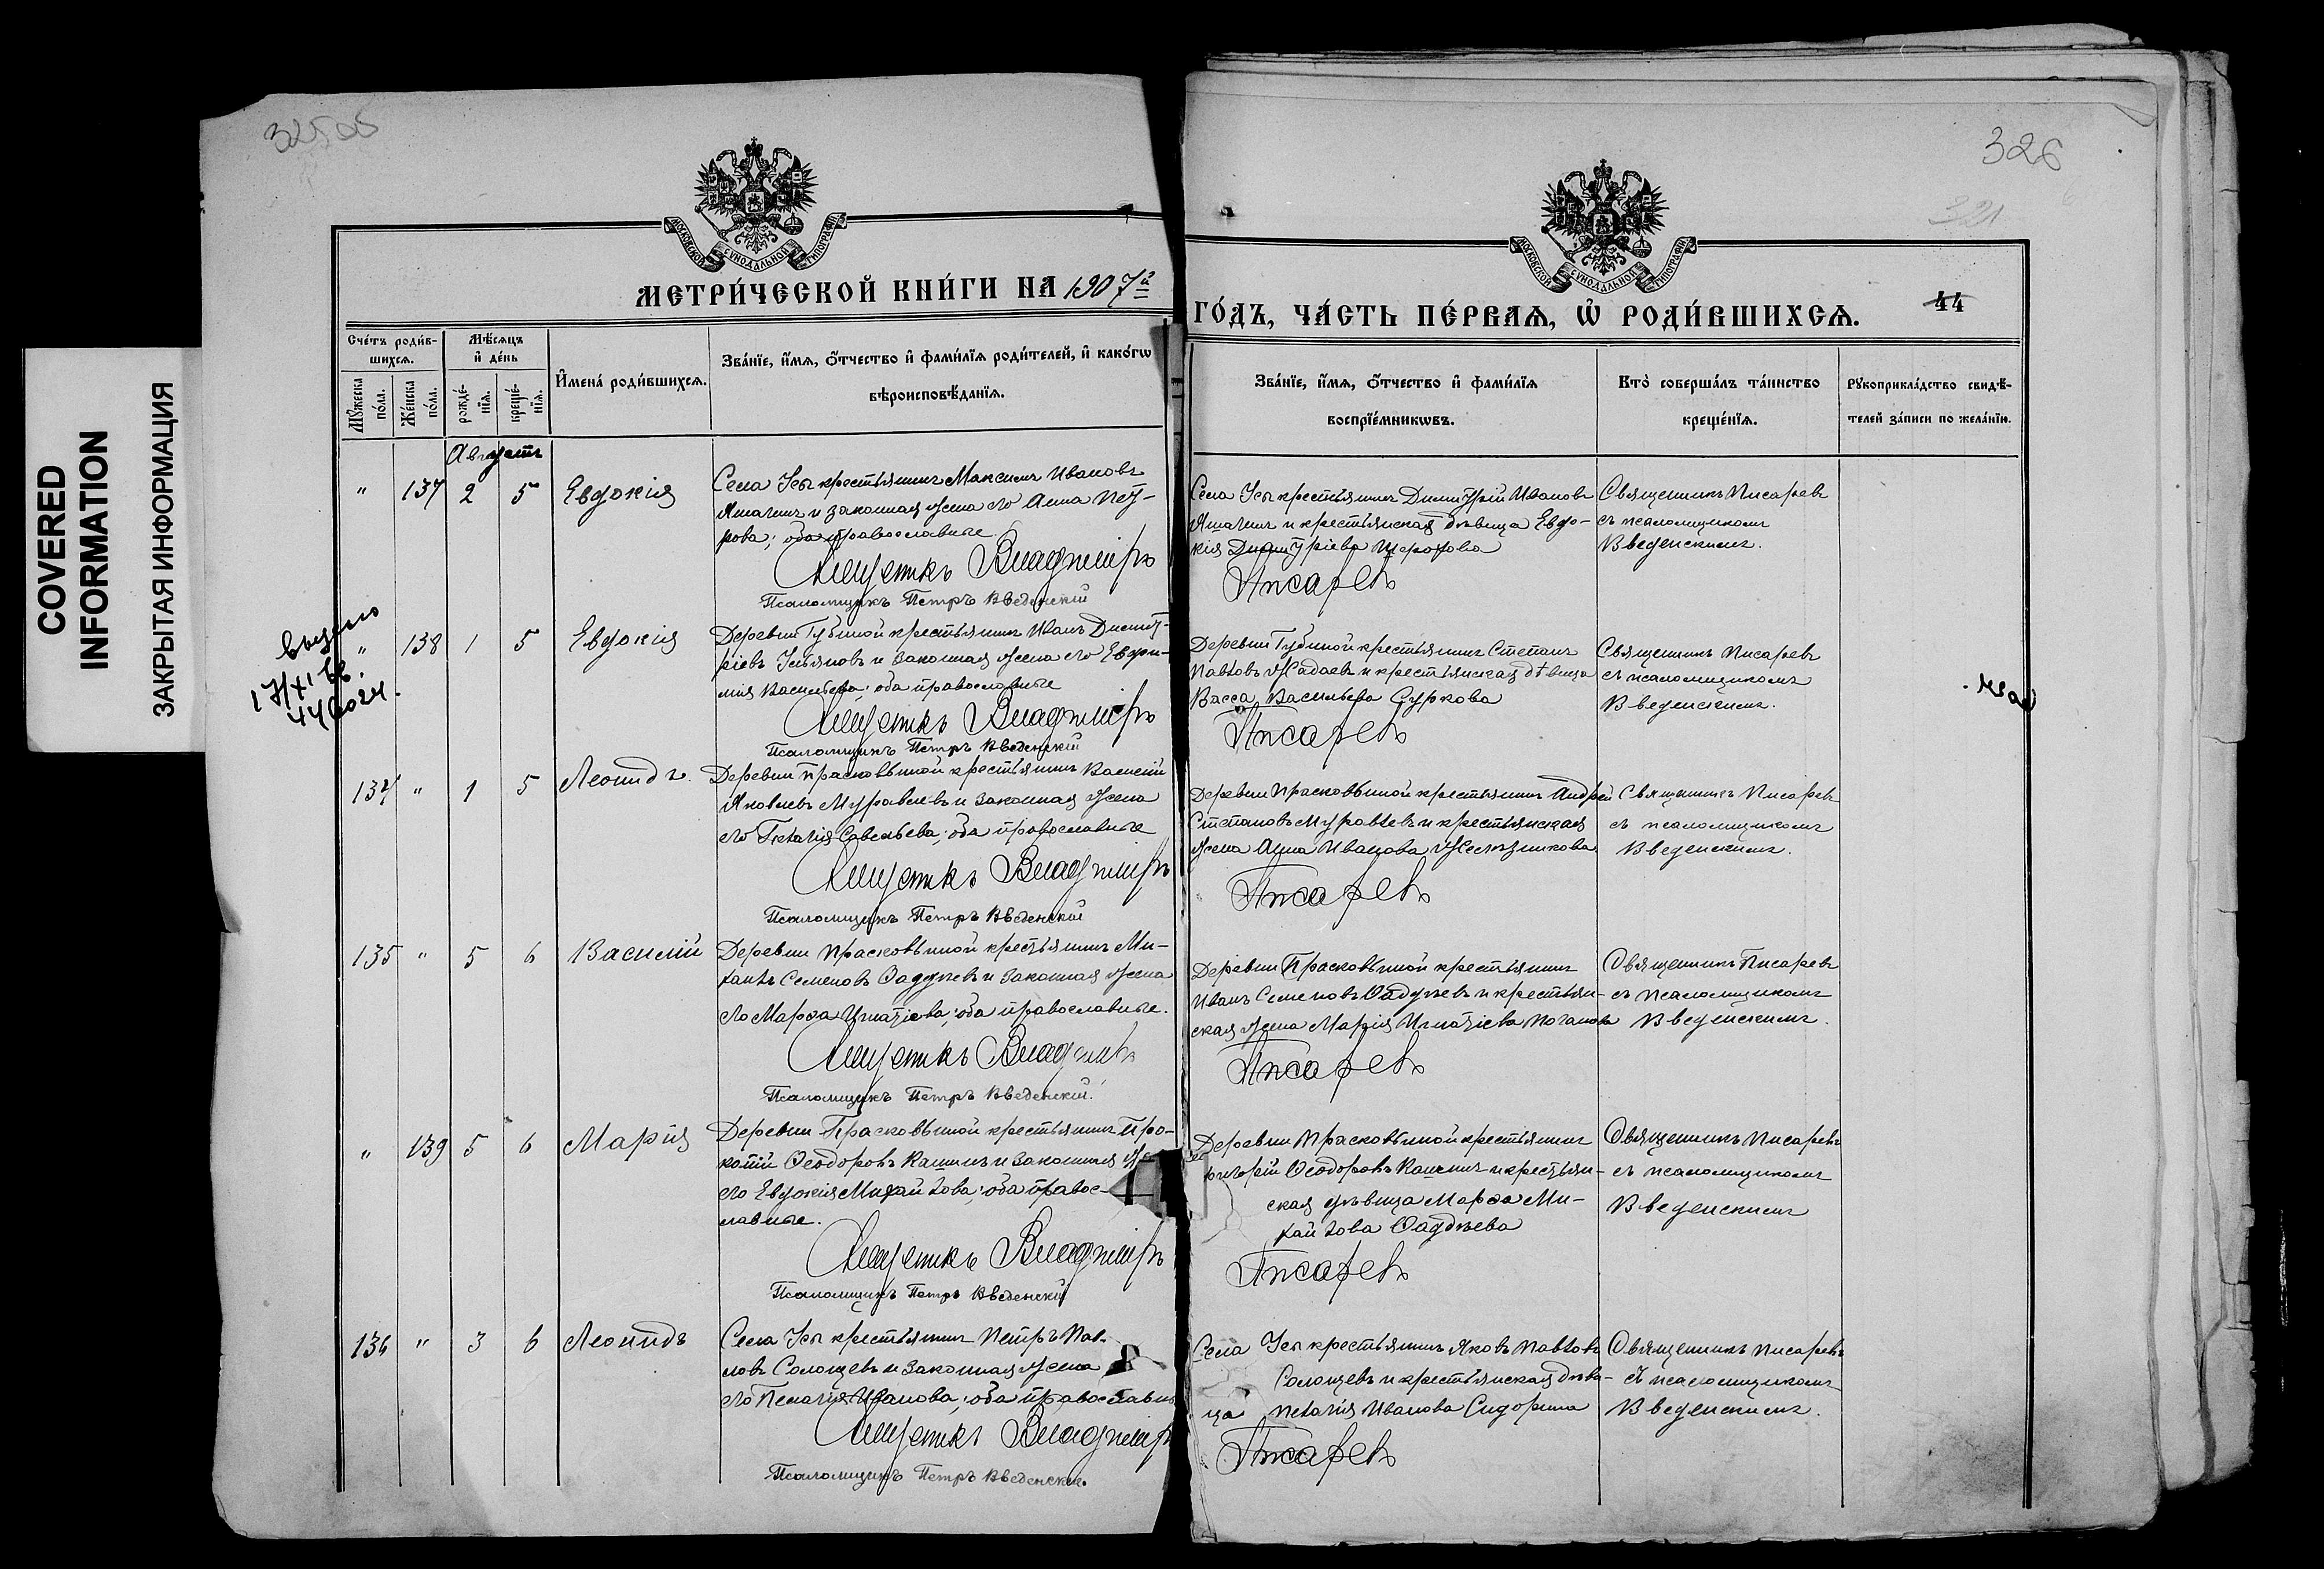 COVERED
INFORMATION
ЗАКРЫТАЯ ИНФОРМАЦИЯ
32505
326
321
МОСКОВСКОЙ СѴНОДАЛЬНОЙ ТИПОГРАФІИ
МОСКОВСКОЙ СѴНОДАЛЬНОЙ ТИПОГРАФІИ
МЕТРИ́ЧЕСКОЙ КНИ́ГИ НА 1907й
ГО́ДЪ, ЧА́СТЬ ПЕ́РВАѦ, Ѡ҆ РОДИ́ВШИХСѦ.
44
Сче́тъ роди́в-
шихсѧ.
Мѣ́сѧцъ
и҆ де́нь
Мꙋ́жеска по́ла.
Же́нска по́ла.
рожде́-
нїѧ.
креще́-
нїѧ.
И҆мена́ роди́вшихсѧ.
Зва́нїе, и҆́мѧ, ѻ҆́тчество и҆ фами́лїѧ роди́телей, и҆ како́гѡ
вѣроисповѣ́данїѧ.
Зва́нїе, и҆́мѧ, ѻ҆́тчество и҆ фами́лїѧ
воспрїе́мникѡвъ.
Кто̀ соверша́лъ та́инство
креще́нїѧ.
Рꙋкоприкла́дство свидѣ́-
телей за́писи по жела́нїю.
Августъ
" 137 2 5 Евдокія
Села Усы крестьянинъ Максимъ Ивановъ
и законная жена его Анна Пет-
рова; оба православные
Священникъ Владиміръ
Псаломщикъ Петръ Введенскій
Села Усы крестьянинъ Димитрій Ивановъ
и крестьянская дѣвица Евдо-
кія Димитріева
Писаревъ
Священникъ Писаревъ
съ псаломщикомъ
Введенскимъ.
17/XI
" 138 1 5 Евдокія
Деревни Губиной крестьянинъ Иванъ Димит-
ріевъ Ульяновъ и законная жена его Евфи-
мія Васильева; оба православные
Священникъ Владиміръ
Псаломщикъ Петръ Введенскій
Деревни Губиной крестьянинъ Степанъ
Павловъ Жадаевъ и крестьянская дѣвица
Васса Васильева Суркова
Писаревъ
Священникъ Писаревъ
съ псаломщикомъ
Введенскимъ.
134 " 1 5 Леонидъ.
Деревни Прасковьиной крестьянинъ Василій
Яковлевъ Муравлевъ и законная жена
его Пелагія Савельева; оба православные
Священникъ Владиміръ
Псаломщикъ Петръ Введенскій
Деревни Прасковьиной крестьянинъ Андрей
Степановъ Муравлевъ и крестьянская
жена Анна Иванова Желѣзникова
Писаревъ
Священникъ Писаревъ
съ псаломщикомъ
Введенскимъ.
135 " 5 6 Василій
Деревни Прасковьиной крестьянинъ Ми-
хаилъ Семеновъ и законная жена
его Марѳа Игнатіева; оба православные.
Священникъ Владиміръ
Псаломщикъ Петръ Введенскій.
Деревни Прасковьиной крестьянинъ
Иванъ Семеновъ и крестьян-
ская жена Марія Игнатіева
Писаревъ
Священникъ Писаревъ
съ псаломщикомъ
Введенскимъ.
" 139 5 6 Марія
Деревни Прасковьиной крестьянинъ Про-
копій Ѳеодоровъ Кашинъ и законная
его Евдокія Михайлова; оба правос-
лавные.
Священникъ Владиміръ
Псаломщикъ Петръ Введенскій
Деревни Прасковьиной крестьянинъ
Григорій Ѳеодоровъ Кашинъ и крестьян-
ская дѣвица Марѳа Ми-
хайлова
Писаревъ
Священникъ Писаревъ
съ псаломщикомъ
Введенскимъ
136 " 3 6 Леонидъ
Села Усы крестьянинъ Петръ Пав-
ловъ Солонцевъ и законная жена
его Пелагія Иванова; оба православн
Священникъ Владиміръ
Псаломщикъ Петръ Введенскій.
Села Усы крестьянинъ Яковъ Павловъ
Солонцевъ и крестьянская дѣви-
ца Пелагія Иванова Сидорина
Писаревъ
Священникъ Писаревъ
съ псаломщикомъ
Введенскимъ.